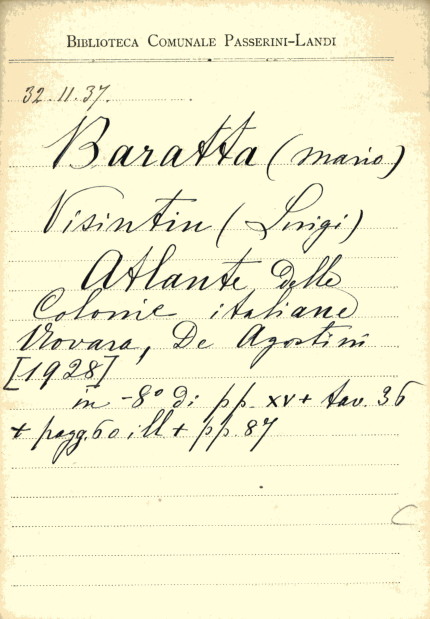 BIBLIOTECA COMUNALE PASSERINI-LANDI
32.11.37.
Baratta (Mario)
Visintin (Luigi)
Atlante delle
Colonie italiane
Novara, De Agostini
[1928]
in-8° di pp. XV + tav. 36
+ pagg. 60 ill + pp. 87